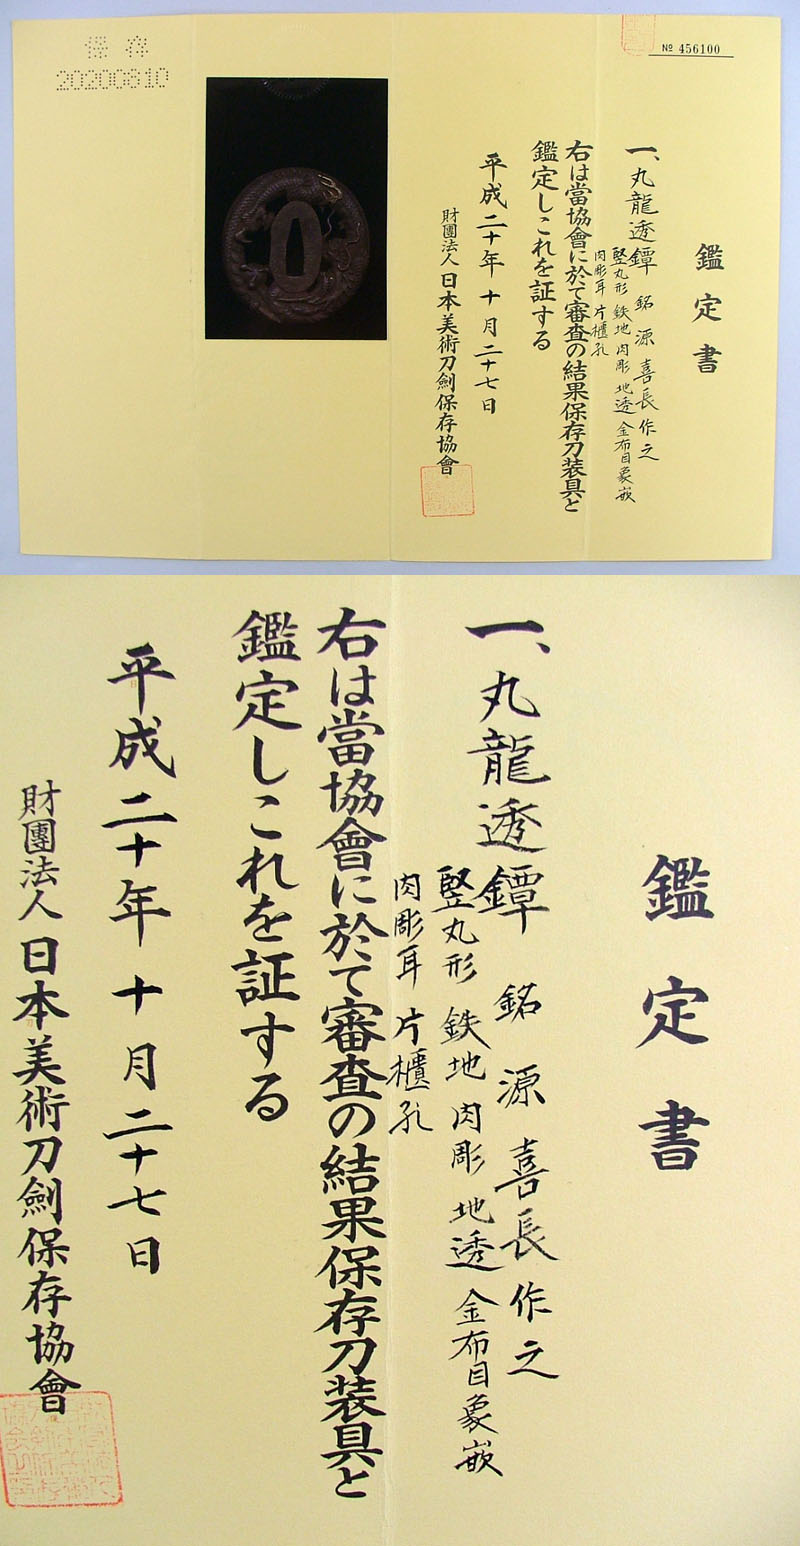 保存
20200810
№ 456100
鑑定書
一、丸龍透鐔 銘 源喜長作之
竪丸形 鉄地 肉彫 地透 金布目象嵌
肉彫耳 片櫃孔
右は當協會に於て審査の結果保存刀装具と
鑑定しこれを証する
平成二十年十月二十七日
財團法人 日本美術刀劍保存協會
鑑定書
一、丸龍透鐔 銘 源喜長作之
竪丸形 鉄地 肉彫 地透 金布目象嵌
肉彫耳 片櫃孔
右は當協會に於て審査の結果保存刀装具と
鑑定しこれを証する
平成二十年十月二十七日
財團法人 日本美術刀劍保存協會